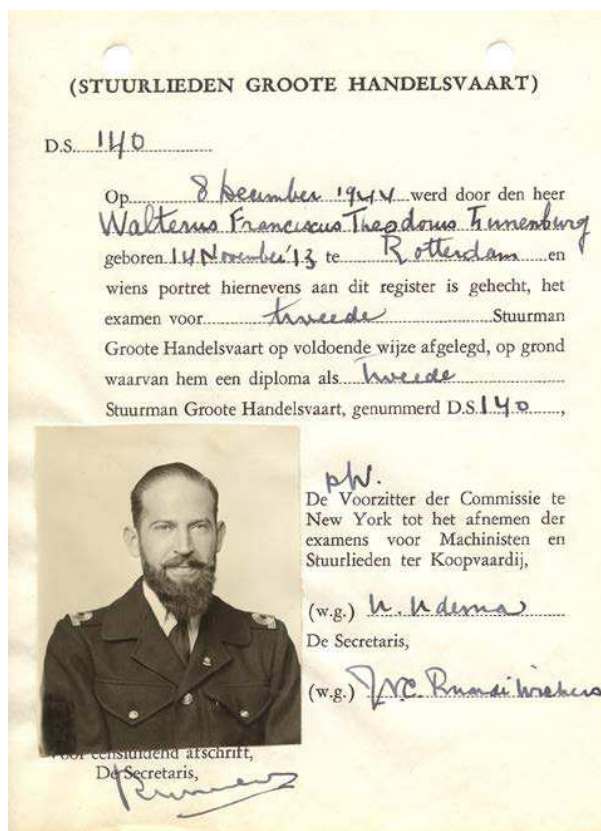 (STUURLIEDEN GROOTE HANDELSVAART)
D.S. 140
Op 8 December 1944 werd door den heer
Walterus Franciscus Theodorus Tunenburg
geboren 14 November '13 te Rotterdam en
wiens portret hiernevens aan dit register is gehecht, het
examen voor tweede Stuurman
Groote Handelsvaart op voldoende wijze afgelegd, op grond
waarvan hem een diploma als tweede
Stuurman Groote Handelsvaart, genummerd D.S. 140,
De Voorzitter der Commissie te
New York tot het afnemen der
examens voor Machinisten en
Stuurlieden ter Koopvaardij,
(w.g.)
De Secretaris,
(w.g.)
Voor eensluidend afschrift,
De Secretaris,